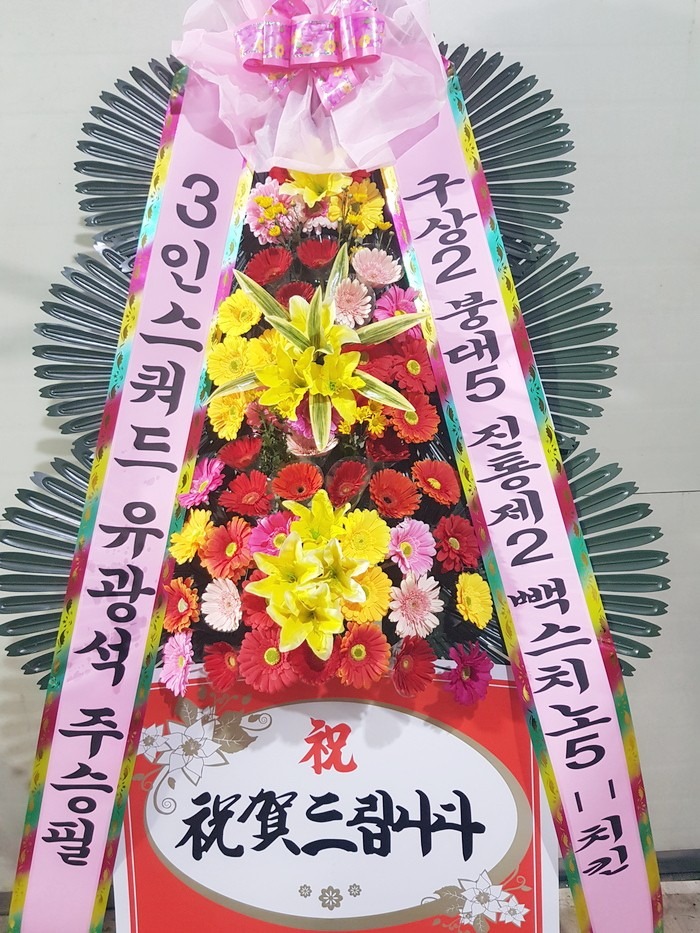 3인스쿼드 유광석 주승필
구상2 붕대5 진통제2 빽스치노5 = 치킨
祝
祝賀드립니다